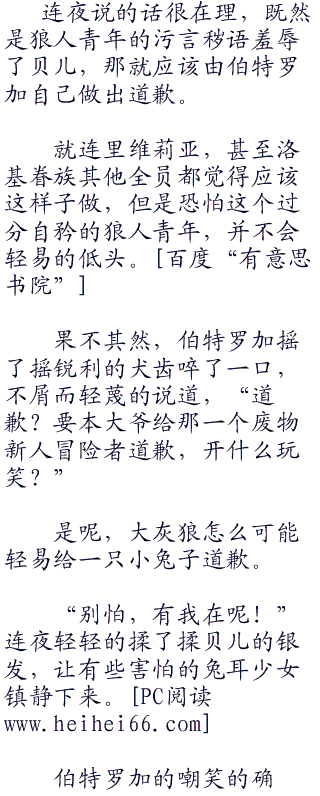 连夜说的话很在理，既然
是狼人青年的污言秽语羞辱
了贝儿，那就应该由伯特罗
加自己做出道歉。
就连里维莉亚，甚至洛
基眷族其他全员都觉得应该
这样子做，但是恐怕这个过
分自矜的狼人青年，并不会
轻易的低头。[百度“有意思
书院”]
果不其然，伯特罗加摇
了摇锐利的犬齿啐了一口，
不屑而轻蔑的说道，“道
歉？要本大爷给那一个废物
新人冒险者道歉，开什么玩
笑？”
是呢，大灰狼怎么可能
轻易给一只小兔子道歉。
“别怕，有我在呢！”
连夜轻轻的揉了揉贝儿的银
发，让有些害怕的兔耳少女
镇静下来。[PC阅读
www.heihei66.com]
伯特罗加的嘲笑的确